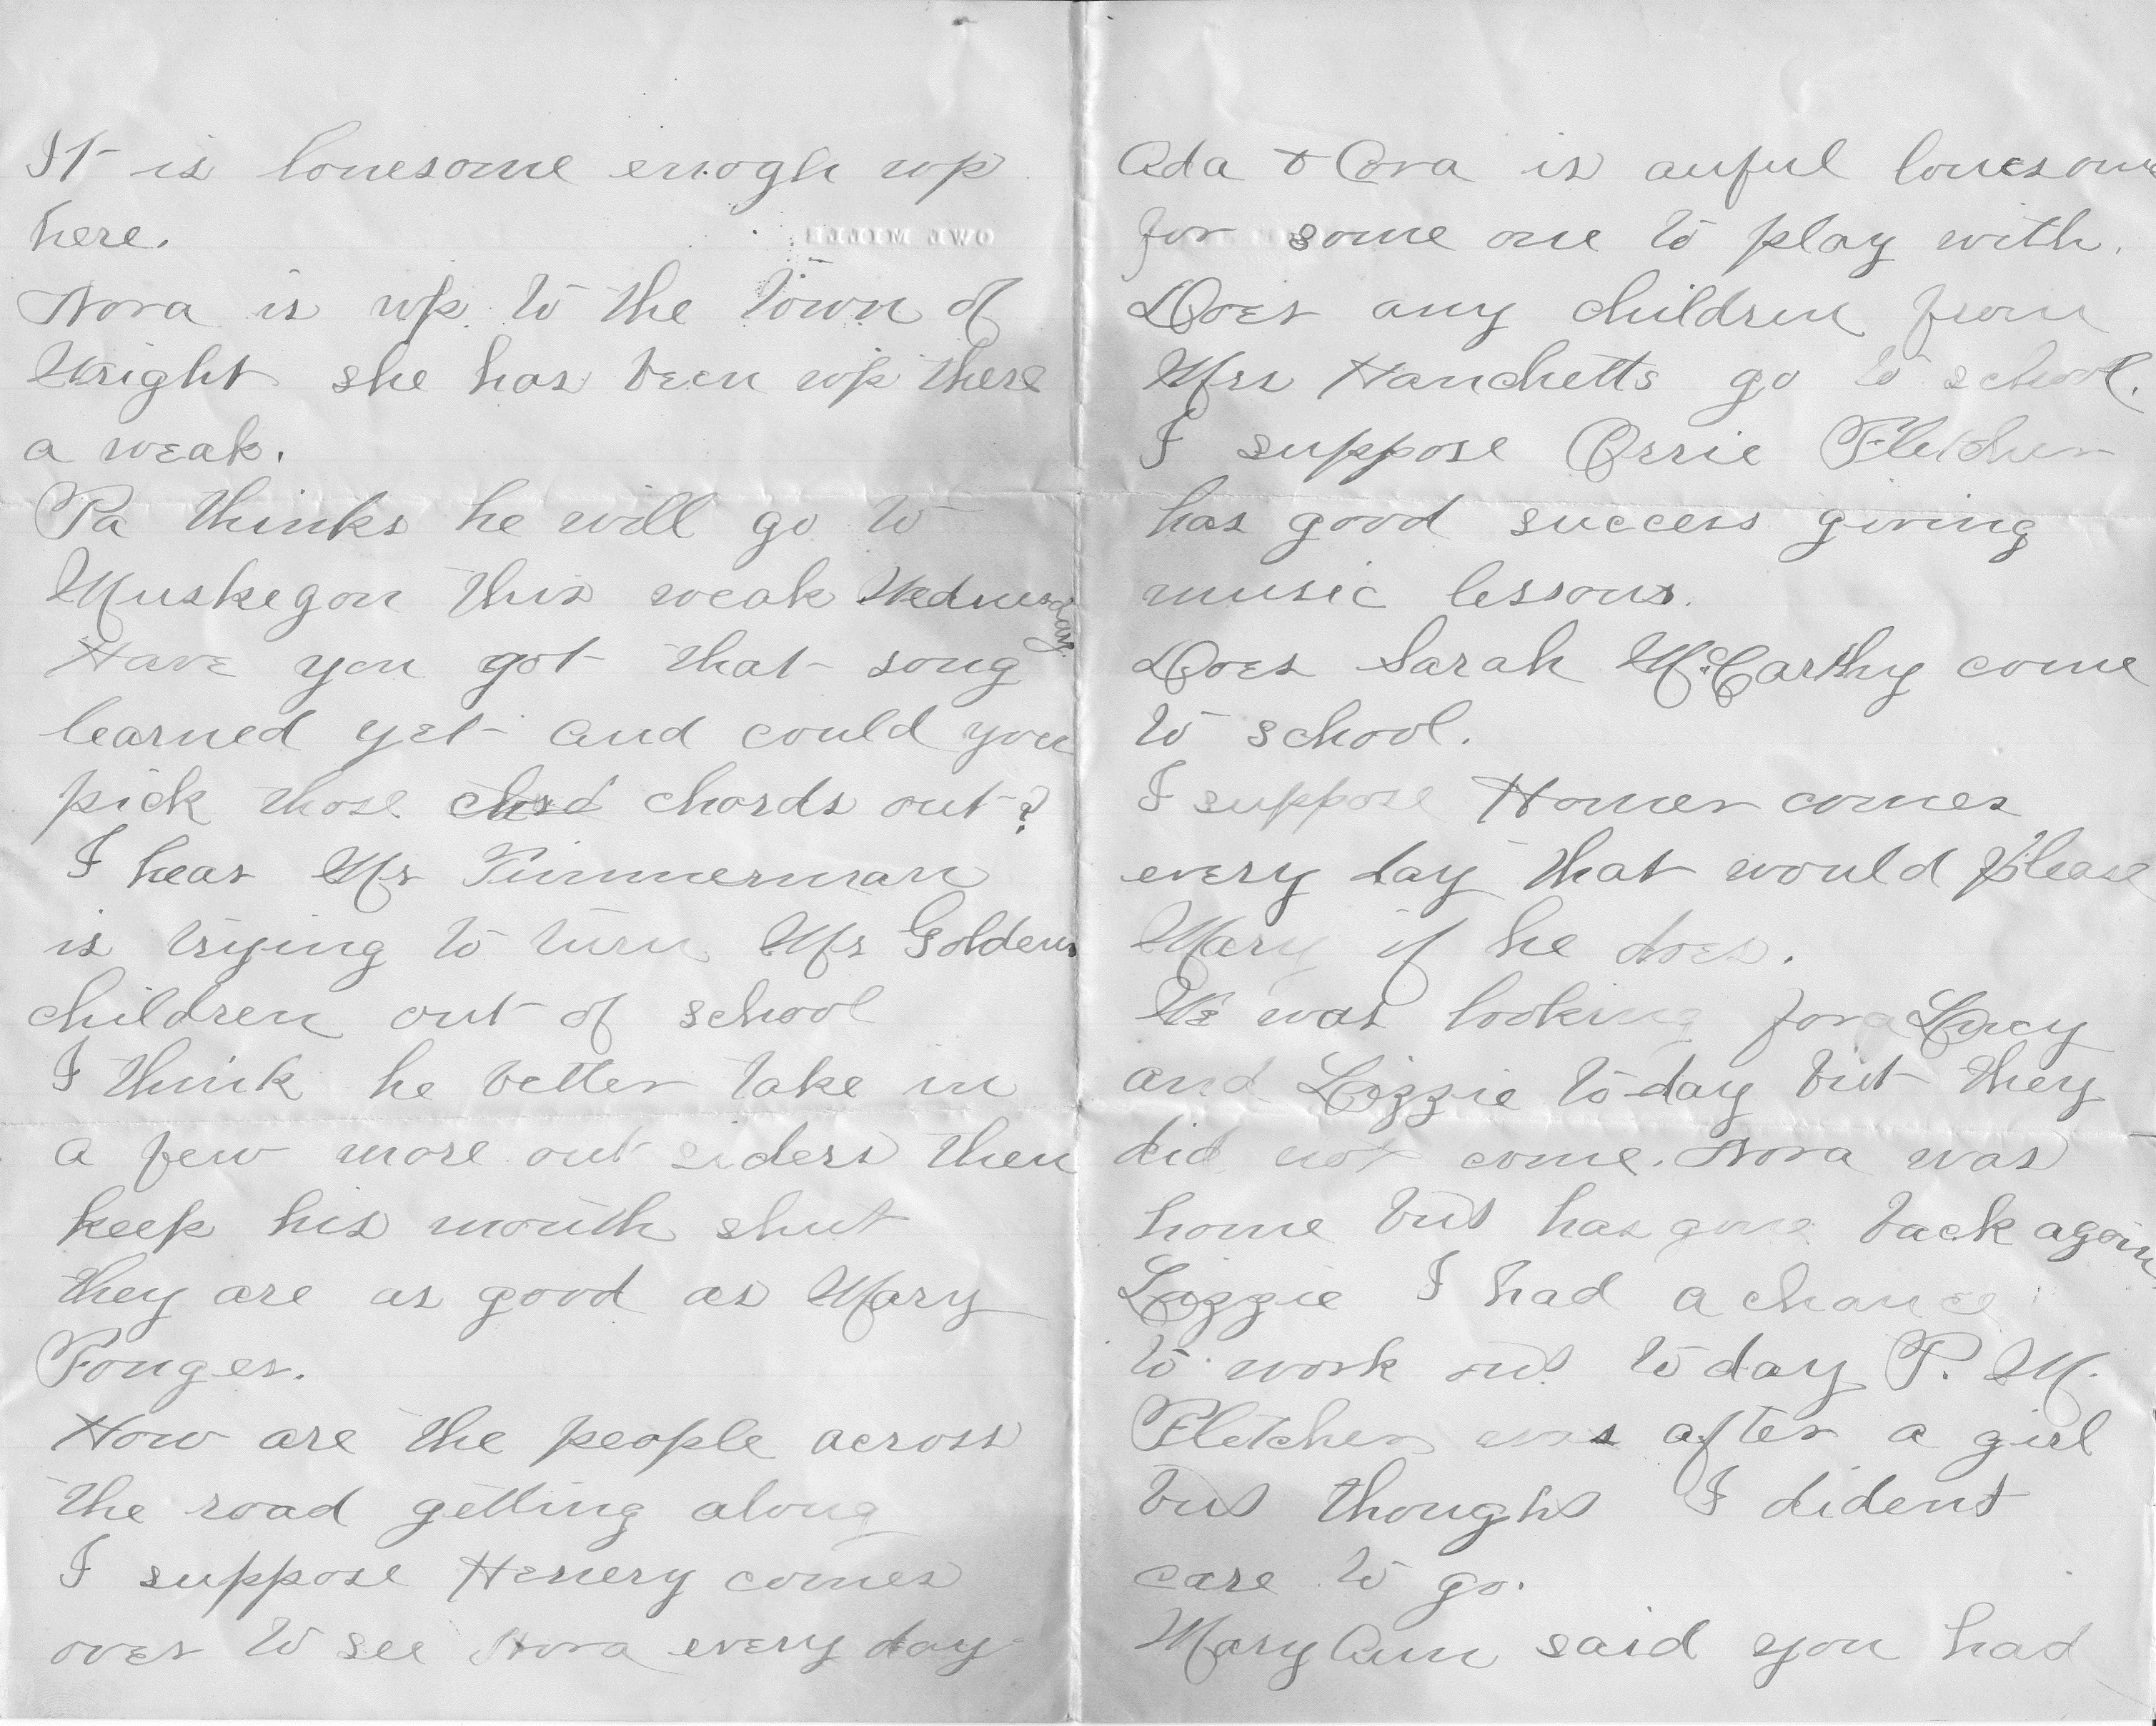 It is lonesome enogh up
here.
Nora is up to the town of
Wright she has been up there
a weak.
Pa thinks he will go to
Muskegon this weak Wednesday
Have you got that song
learned yet and could you
pick those chord chords out?
I hear Mr Timmerman
is trying to turn Mr Goldens
children out of school
I think he better take in
a few more out siders then
keep his mouth shut
they are as good as Mary
Fonger.
How are the people across
the road getting along
I suppose Henery comes
over to see Nora every day
Ada & Cora is auful lonesome
for some one to play with.
Does any children from
Mrs Hanchetts go to school.
I suppose Orrie Fletcher
has good success giving
music lessons.
Does Sarah McCarthy come
to school.
I suppose Homer comes
every day that would please
Mary if he does.
We was looking for Lucy
and Lizzie to day but they
did not come. Nora was
home but has gone back again
Lizzie I had a chance
to work out to day P. M.
Fletcher was after a girl
but thought I dident
care to go.
Mary Ann said you had